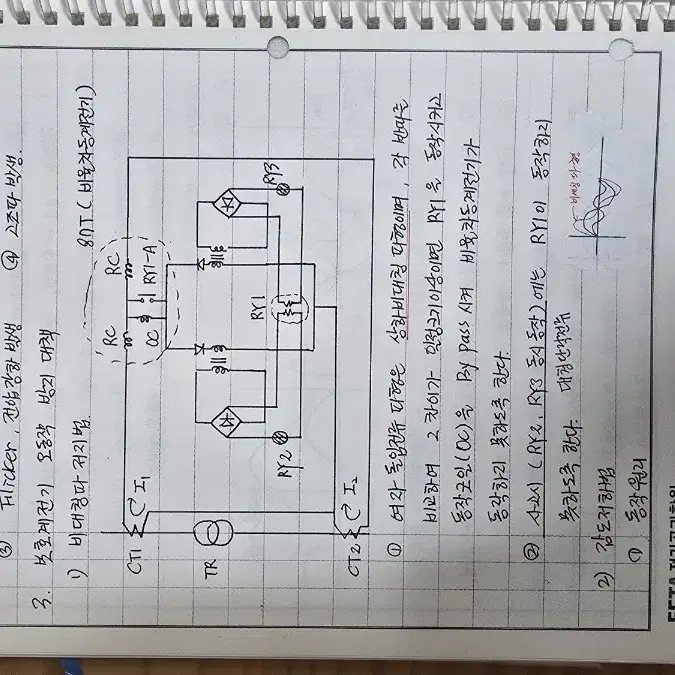 ③ Flicker, 전압강하 발생 ④ 고조파 발생.
3. 보호계전기 오동작 방지 대책
1) 비대칭파 저지법
87T (비율차동계전기)
RC RC
OC RY1-A
RY1
RY2 RY3
CT1 I1
TR
CT2 I2
① 여자 돌입전류 파형은 상하비대칭 파형이며, 각 반파를
비교하여 그 차이가 일정크기이상이면 RY1을 동작시키고
동작코일(OC)을 By pass 시켜 비율차동계전기가
동작하지 못하도록 한다.
② 사고시 (RY2, RY3 동시동작)에는 RY1이 동작하지
못하도록 한다. 대칭단락전류
비대칭파형
2) 감도저하법
① 동작원리